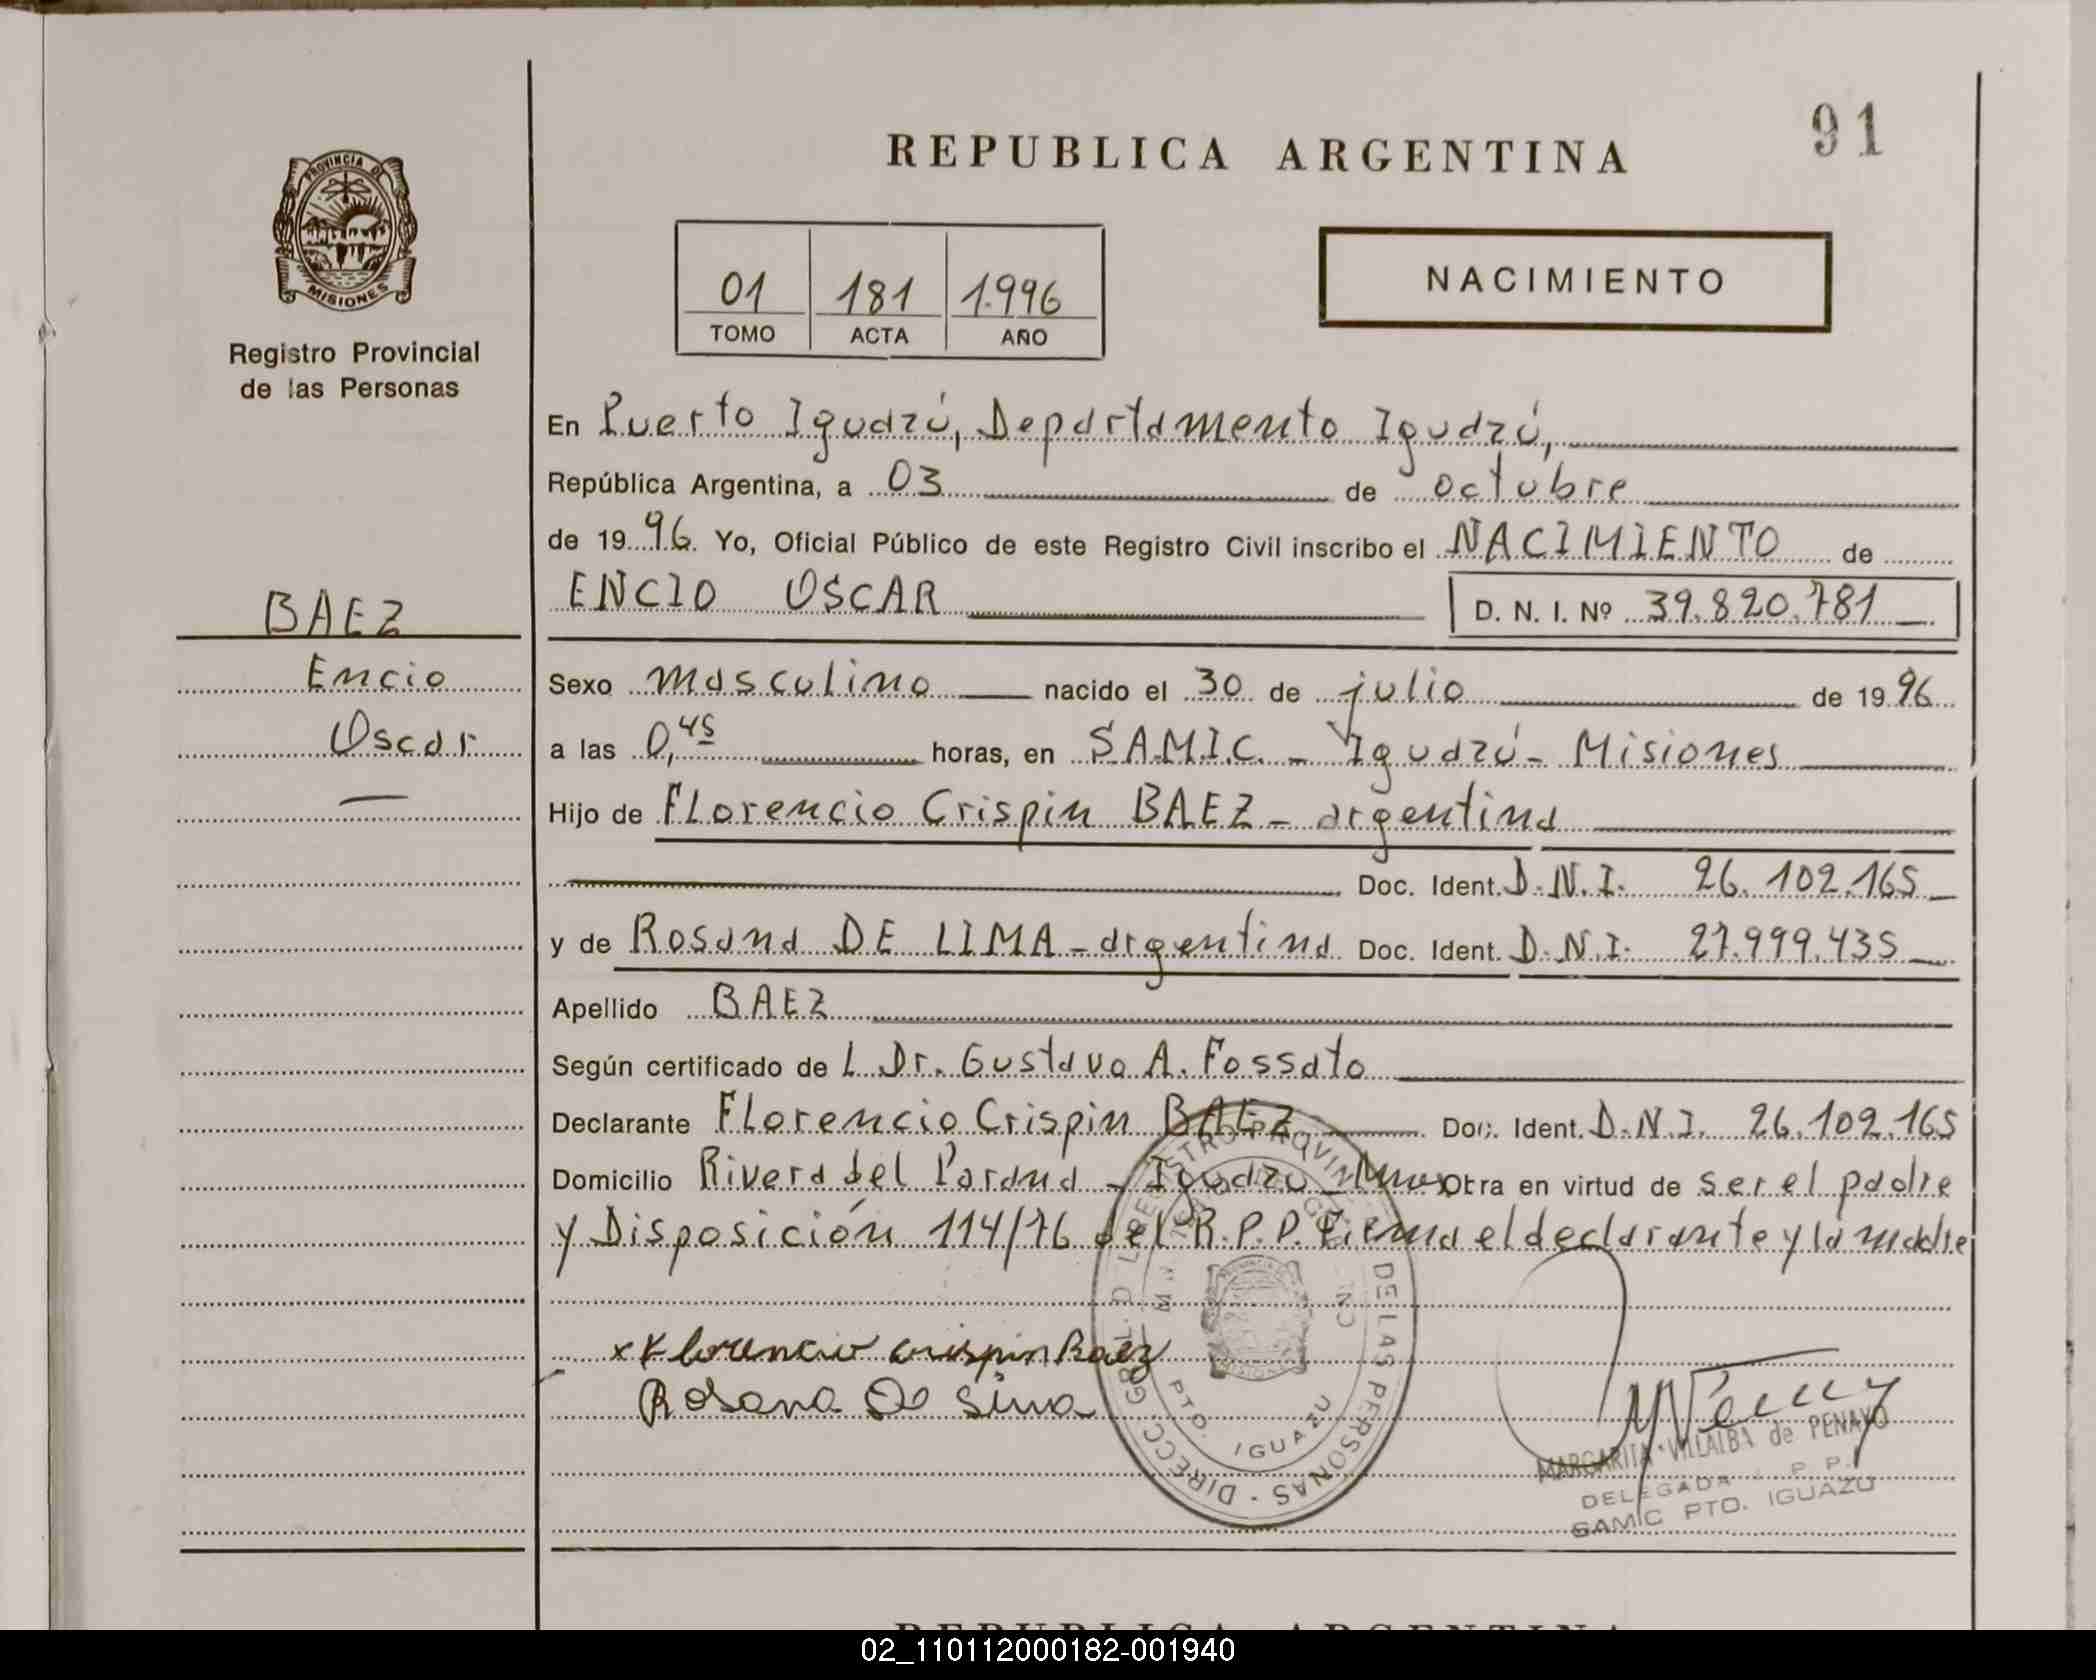 91
REPUBLICA ARGENTINA
PROVINCIA DE
MISIONES
Registro Provincial
de las Personas
01 181 1.996
TOMO ACTA AÑO
NACIMIENTO
En Puerto Iguazú, Departamento Iguazú,
República Argentina, a 03 de octubre
de 1996. Yo, Oficial Público de este Registro Civil inscribo el NACIMIENTO de
ENCIO OSCAR D. N. I. Nº 39.820.781
BAEZ
Encio
Oscar
Sexo masculino nacido el 30 de julio de 1996
a las 0,45 horas, en S.A.M.I.C. - Iguazú - Misiones
Hijo de Florencio Crispin BAEZ - argentina
Doc. Ident. D.N.I. 26.102.165
y de Rosana DE LIMA - argentina Doc. Ident. D.N.I. 27.999.435
Apellido BAEZ
Según certificado de L Dr. Gustavo A. Fossato
Declarante Florencio Crispin BAEZ Doc. Ident. D.N.I. 26.102.165
Domicilio Rivera del Parana - Iguazu - Mnes Obra en virtud de ser el padre
y Disposición 114/76 del R.P.P. Firma el declarante y la madre
x Florencio crispin Baez
Rosana De Lima
DIRECC GRL. D L REGISTRO PROVIN DE LAS PERSONAS
PTO. IGUAZU
MARGARITA VILLALBA de PENAYO
DELEGADA P. P.
SAMIC PTO. IGUAZU
REPUBLICA ARGENTINA
02_110112000182-001940